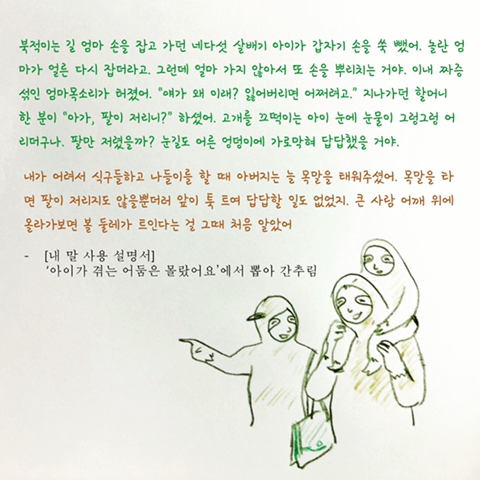 북적이는 길 엄마 손을 잡고 가던 네다섯 살배기 아이가 갑자기 손을 쏙 뺐어. 놀란 엄
마가 얼른 다시 잡더라고. 그런데 얼마 가지 않아서 또 손을 뿌리치는 거야. 이내 짜증
섞인 엄마목소리가 허졌어. "얘가 왜 이래? 잃어버리면 어쩌려고." 지나가던 할머니
한 분이 "아가, 팔이 저리니?" 하셨어. 고개를 끄떡이는 아이 눈에 눈물이 그렁그렁 어
리더구나. 팔만 저렸을까? 눈길도 어른 엉덩이에 가로막혀 답답했을 거야.
내가 어려서 식구들하고 나들이를 할 때 아버지는 늘 목말을 태워주셨어. 목말을 타
면 팔이 저리지도 않을뿐더러 앞이 툭 트여 답답할 일도 없었지. 큰 사람 어깨 위에
올라가보면 볼 둘레가 트인다는 걸 그때 처음 알았어
- [내 말 사용 설명서]
'아이가 겪는 어둠은 몰랐어요'에서 뽑아 간추림